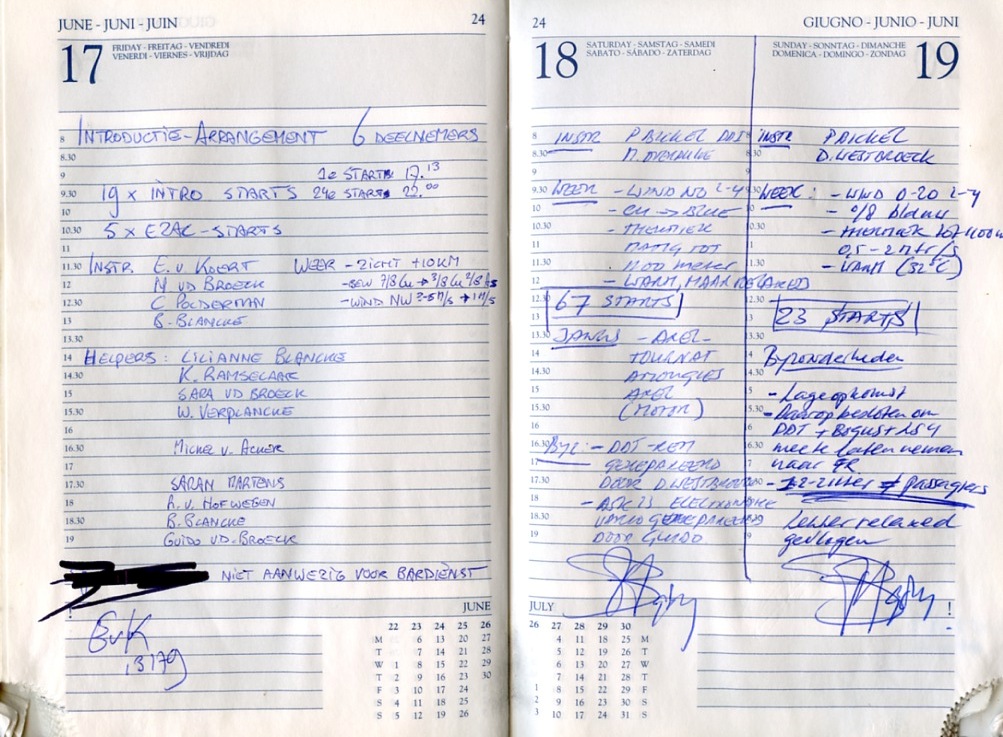 JUNE - JUNI - JUIN 24
17 FRIDAY - FREITAG - VENDREDI
VENERDI - VIERNES - VRIJDAG
8 INTRODUCTIE-ARRANGEMENT 6 DEELNEMERS
8.30
9 1e START: 17.13
9.30 19 x INTRO STARTS 24e START: 22.00
10
10.30 5 x EZAC-STARTS
11
11.30 INSTR. E. v. KOERT WEER - ZICHT +10KM
12 M. VD BROECK
12.30 C POLDERMAN - WIND NW 2-5 M/S → 1 M/S
13 B. BLANCKE
13.30
14 HELPERS: LILIANNE BLANCKE
14.30 K. RAMSELAAR
15 SARA VD BROECK
15.30 W. VERPLANCKE
16
16.30 MICHEL V. ACKER
17
17.30 SARAH MARTENS
18 R. v. HOFWEGEN
18.30 B. BLANCKE
19 GUIDO VD. BROECK
NIET AANWEZIG VOOR BARDIENST
!
EvK
13179
JUNE
22 23 24 25 26
M 6 13 20 27
T 7 14 21 28
W 1 8 15 22 29
T 2 9 16 23 30
F 3 10 17 24
S 4 11 18 25
S 5 12 19 26
24
18 SATURDAY - SAMSTAG - SAMEDI
SABATO - SÁBADO - ZATERDAG
8 INSTR P. BICKEL
8.30
9
9.30 WEER - WIND NO 2-4
10 - CU → BLUE
10.30 - THERMIEK
11 MATIG TOT
11.30 1100 meter
12 - WARM, MAAR RELAXED
12.30 67 STARTS
13
13.30 JANUS - AXEL-
14 TOURNAT
14.30 ATIONGLES
15 AXEL
15.30 (MOTOR)
16
16.30 Byz: - DDT-REM
17 GEREPAREERD
17.30 DOOR D. WESTBROECK
18 - ASK 13 ELECTRONISCHE
18.30 VARIO GEREPAREERD
19 DOOR GUIDO
JULY
26 27 28 29 30
4 11 18 25 M
5 12 19 26 T
6 13 20 27 W
7 14 21 28 T
1 8 15 22 29 F
2 9 16 23 30 S
3 10 17 24 31 S
GIUGNO - JUNIO - JUNI
SUNDAY - SONNTAG - DIMANCHE
DOMENICA - DOMINGO - ZONDAG 19
INSTR P. BICKEL
D. WESTBROECK
WEER: - WIND 0-20 2-4
- 0/8 blauw
- THERMIEK
0,5 - 2 mtr/s
- WARM (32°C)
23 STARTS
Byzonderheden
- Lage opkomst
- Daarop besloten om
DDT + Bogust + LS4
mee te laten nemen
naar FR
passagiers
Lekker relaxed
gevlogen
!